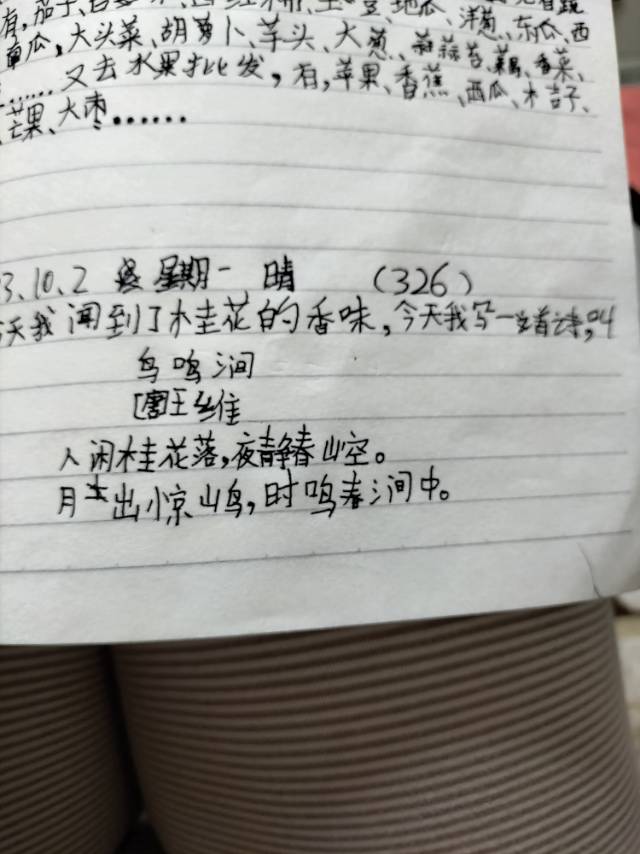 有,茄子、豆、地瓜、洋葱、东瓜、西
瓜,大头菜、胡萝卜、芋头、大葱、蒜苔、藕、香菜、
……又去水果批发,有,苹果、香蕉、西瓜、木吉子、
芒果、大枣……
3.10.2 星期一 晴 (326)
天我闻到了桂花的香味,今天我写一首诗,叫
鸟鸣涧
[唐]王维
人闲桂花落,夜静春山空。
月出惊山鸟,时鸣春涧中。